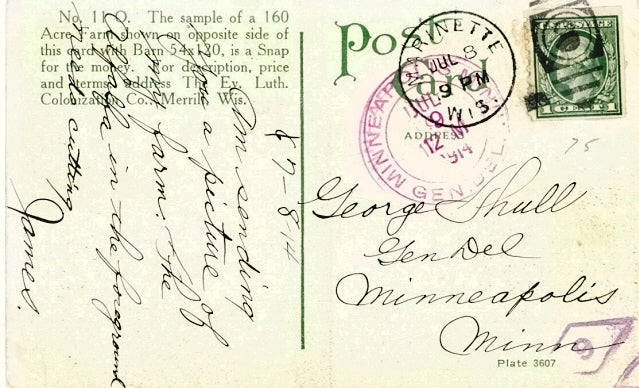 No. 11 O. The sample of a 160
Acre Farm shown on opposite side of
this card with Barn 54x120, is a Snap
for the money. For description, price
and terms, address The Ev. Luth.
Colonization Co., Merrill, Wis.
Post
Card
ADDRESS
MARINETTE
JUL 8
9 PM
WIS.
MINNEAPOLIS
JUL
9
12 M
1914
GEN. DEL.
U.S. POSTAGE
75
8 7-8-14
Am sending
you a picture of
our farm. The
alfalfa in the foreground
needs cutting
James.
George Shull
Gen Del
Minneapolis
Minn
Plate 3607
9